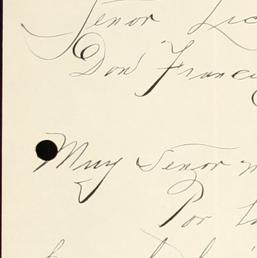 Señor Lic
Don Franci
Muy Señor m
Por l